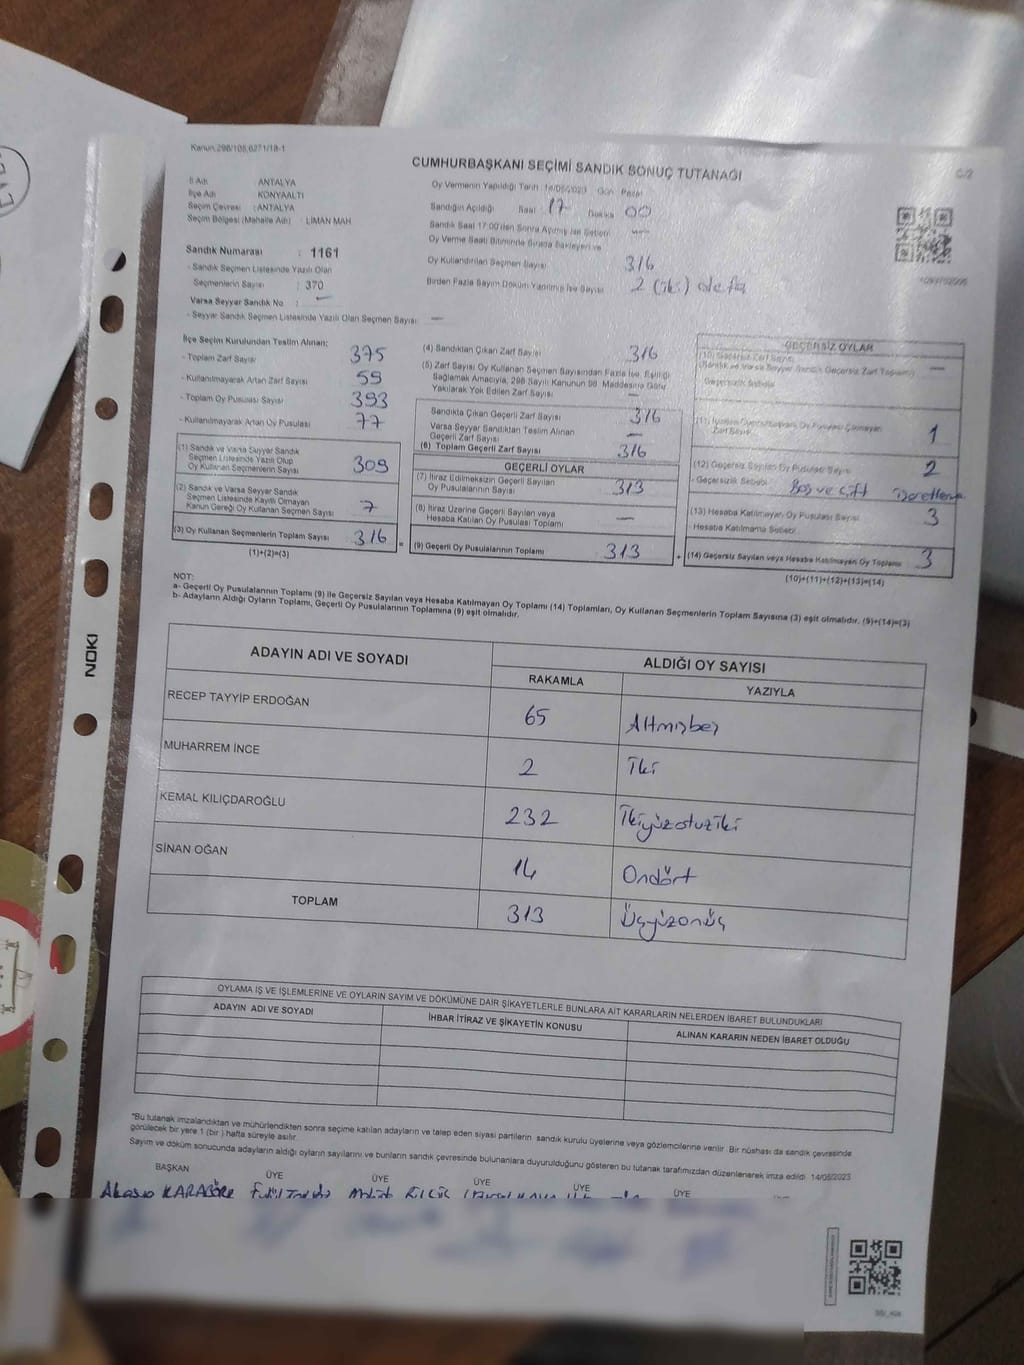 Kanun.298/105,6271/18-1
CUMHURBAŞKANI SEÇİMİ SANDIK SONUÇ TUTANAĞI
C/2
İl Adı : ANTALYA
İlçe Adı : KONYAALTI
Seçim Çevresi : ANTALYA
Seçim Bölgesi (Mahalle Adı) : LİMAN MAH
Sandık Numarası : 1161
- Sandık Seçmen Listesinde Yazılı Olan
Seçmenlerin Sayısı : 370
Varsa Seyyar Sandık No : —
- Seyyar Sandık Seçmen Listesinde Yazılı Olan Seçmen Sayısı —
Oy Vermenin Yapıldığı Tarih 14/05/2023 Gün Pazar
Sandığın Açıldığı Saat 17 Dakika 00
Sandık Saat 17:00'den Sonra Açılmış İse Sebebi —
Oy Verme Saati Bitiminde Sırada Bekleyen ve
Oy Kullandırılan Seçmen Sayısı 316
Birden Fazla Sayım Döküm Yapılmış İse Sayısı 2 (iki) defa
İlçe Seçim Kurulundan Teslim Alınan:
- Toplam Zarf Sayısı 375
- Kullanılmayarak Artan Zarf Sayısı 59
- Toplam Oy Pusulası Sayısı 393
- Kullanılmayarak Artan Oy Pusulası 77
(1) Sandık ve Varsa Seyyar Sandık
Seçmen Listesinde Yazılı Olup
Oy Kullanan Seçmenlerin Sayısı 309
(2) Sandık ve Varsa Seyyar Sandık
Seçmen Listesinde Kayıtlı Olmayan
Kanun Gereği Oy Kullanan Seçmen Sayısı 7
(3) Oy Kullanan Seçmenlerin Toplam Sayısı 316
(1)+(2)=(3)
(4) Sandıktan Çıkan Zarf Sayısı 316
(5) Zarf Sayısı Oy Kullanan Seçmen Sayısından Fazla İse, Eşitliği
Sağlamak Amacıyla, 298 Sayılı Kanunun 98. Maddesine Göre
Yakılarak Yok Edilen Zarf Sayısı —
Sandıkta Çıkan Geçerli Zarf Sayısı 316
Varsa Seyyar Sandıktan Teslim Alınan
Geçerli Zarf Sayısı —
(6) Toplam Geçerli Zarf Sayısı 316
GEÇERLİ OYLAR
(7) İtiraz Edilmeksizin Geçerli Sayılan
Oy Pusulalarının Sayısı 313
(8) İtiraz Üzerine Geçerli Sayılan veya
Hesaba Katılan Oy Pusulası Toplamı —
= (9) Geçerli Oy Pusulalarının Toplamı 313 +
GEÇERSİZ OYLAR
(10) Geçersiz Zarf Sayısı
(Sandık ve Varsa Seyyar Sandık Geçersiz Zarf Toplamı) —
Geçersizlik Sebebi
Zarf Sayısı 1
(12) Geçersiz Sayılan Oy Pusulası Sayısı 2
- Geçersizlik Sebebi Boş ve Çift
(13) Hesaba Katılmayan Oy Pusulası Sayısı 3
Hesaba Katılmama Sebebi
(14) Geçersiz Sayılan veya Hesaba Katılmayan Oy Toplamı 3
(10)+(11)+(12)+(13)=(14)
NOT:
a- Geçerli Oy Pusulalarının Toplamı (9) ile Geçersiz Sayılan veya Hesaba Katılmayan Oy Toplamı (14) Toplamları, Oy Kullanan Seçmenlerin Toplam Sayısına (3) eşit olmalıdır. (9)+(14)=(3)
b- Adayların Aldığı Oyların Toplamı, Geçerli Oy Pusulalarının Toplamına (9) eşit olmalıdır.
NOKI
ADAYIN ADI VE SOYADI
ALDIĞI OY SAYISI
RAKAMLA YAZIYLA
RECEP TAYYİP ERDOĞAN 65 Altmışbeş
MUHARREM İNCE 2 İki
KEMAL KILIÇDAROĞLU 232 İkiyüzotuziki
SİNAN OĞAN 14 Ondört
TOPLAM 313 Üçyüzonüç
OYLAMA İŞ VE İŞLEMLERİNE VE OYLARIN SAYIM VE DÖKÜMÜNE DAİR ŞİKAYETLERLE BUNLARA AİT KARARLARIN NELERDEN İBARET BULUNDUKLARI
ADAYIN ADI VE SOYADI
İHBAR İTİRAZ VE ŞİKAYETİN KONUSU
ALINAN KARARIN NEDEN İBARET OLDUĞU
"Bu tutanak imzalandıktan ve mühürlendikten sonra seçime katılan adayların ve talep eden siyasi partilerin sandık kurulu üyelerine veya gözlemcilerine verilir. Bir nüshası da sandık çevresinde
görülecek bir yere 1 (bir ) hafta süreyle asılır.
Sayım ve döküm sonucunda adayların aldığı oyların sayılarını ve bunların sandık çevresinde bulunanlara duyurulduğunu gösteren bu tutanak tarafımızdan düzenlenerek imza edildi. 14/05/2023
BAŞKAN ÜYE ÜYE ÜYE ÜYE ÜYE